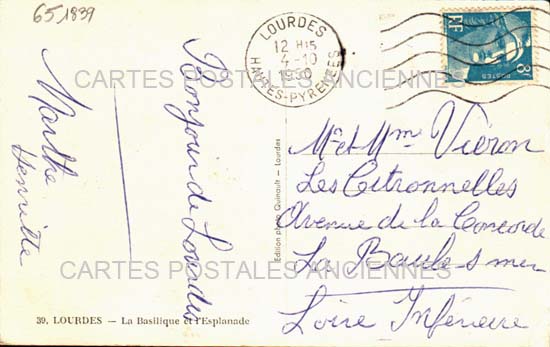 65,1839
LOURDES
12 H15
4-10
1950
HTES-PYRÉNÉES
RF
POSTES
8F
CARTES POSTALES ANCIENNES
Bonjour de Lourdes
Marthe
Henriette
Mr et Mme Viéron
Les Citronnelles
Avenue de la Concorde
La Baule s mer
Loire Inférieure
CARTES POSTALES ANCIENNES
Edition photo Quinault - Lourdes
39. LOURDES – La Basilique et l'Esplanade